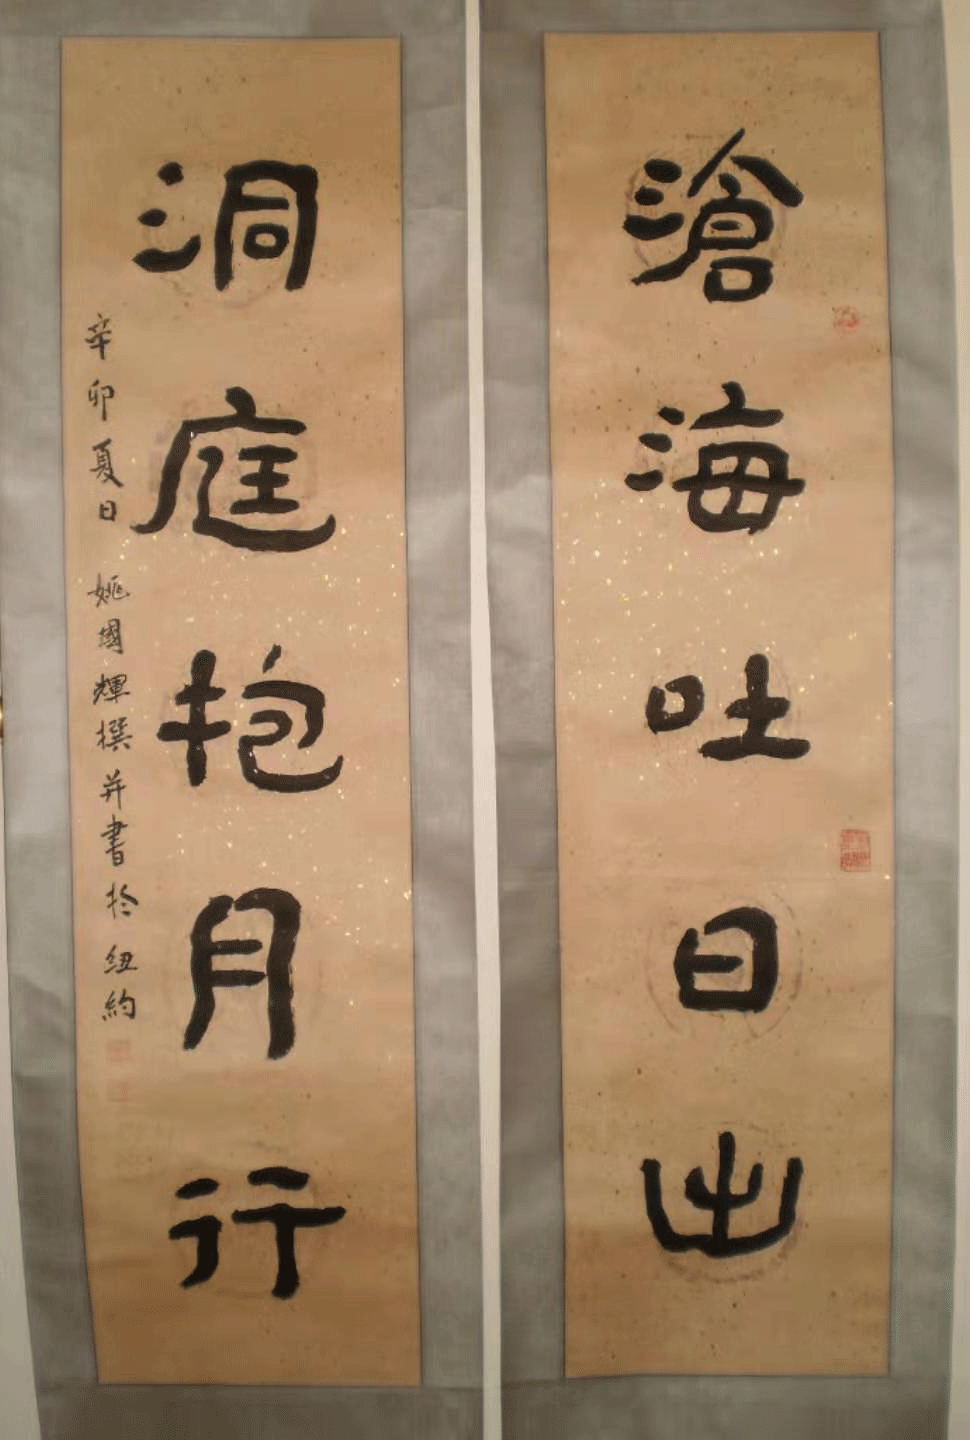 滄海吐日出
洞庭抱月行
辛卯夏日 姚國輝撰并書於紐約